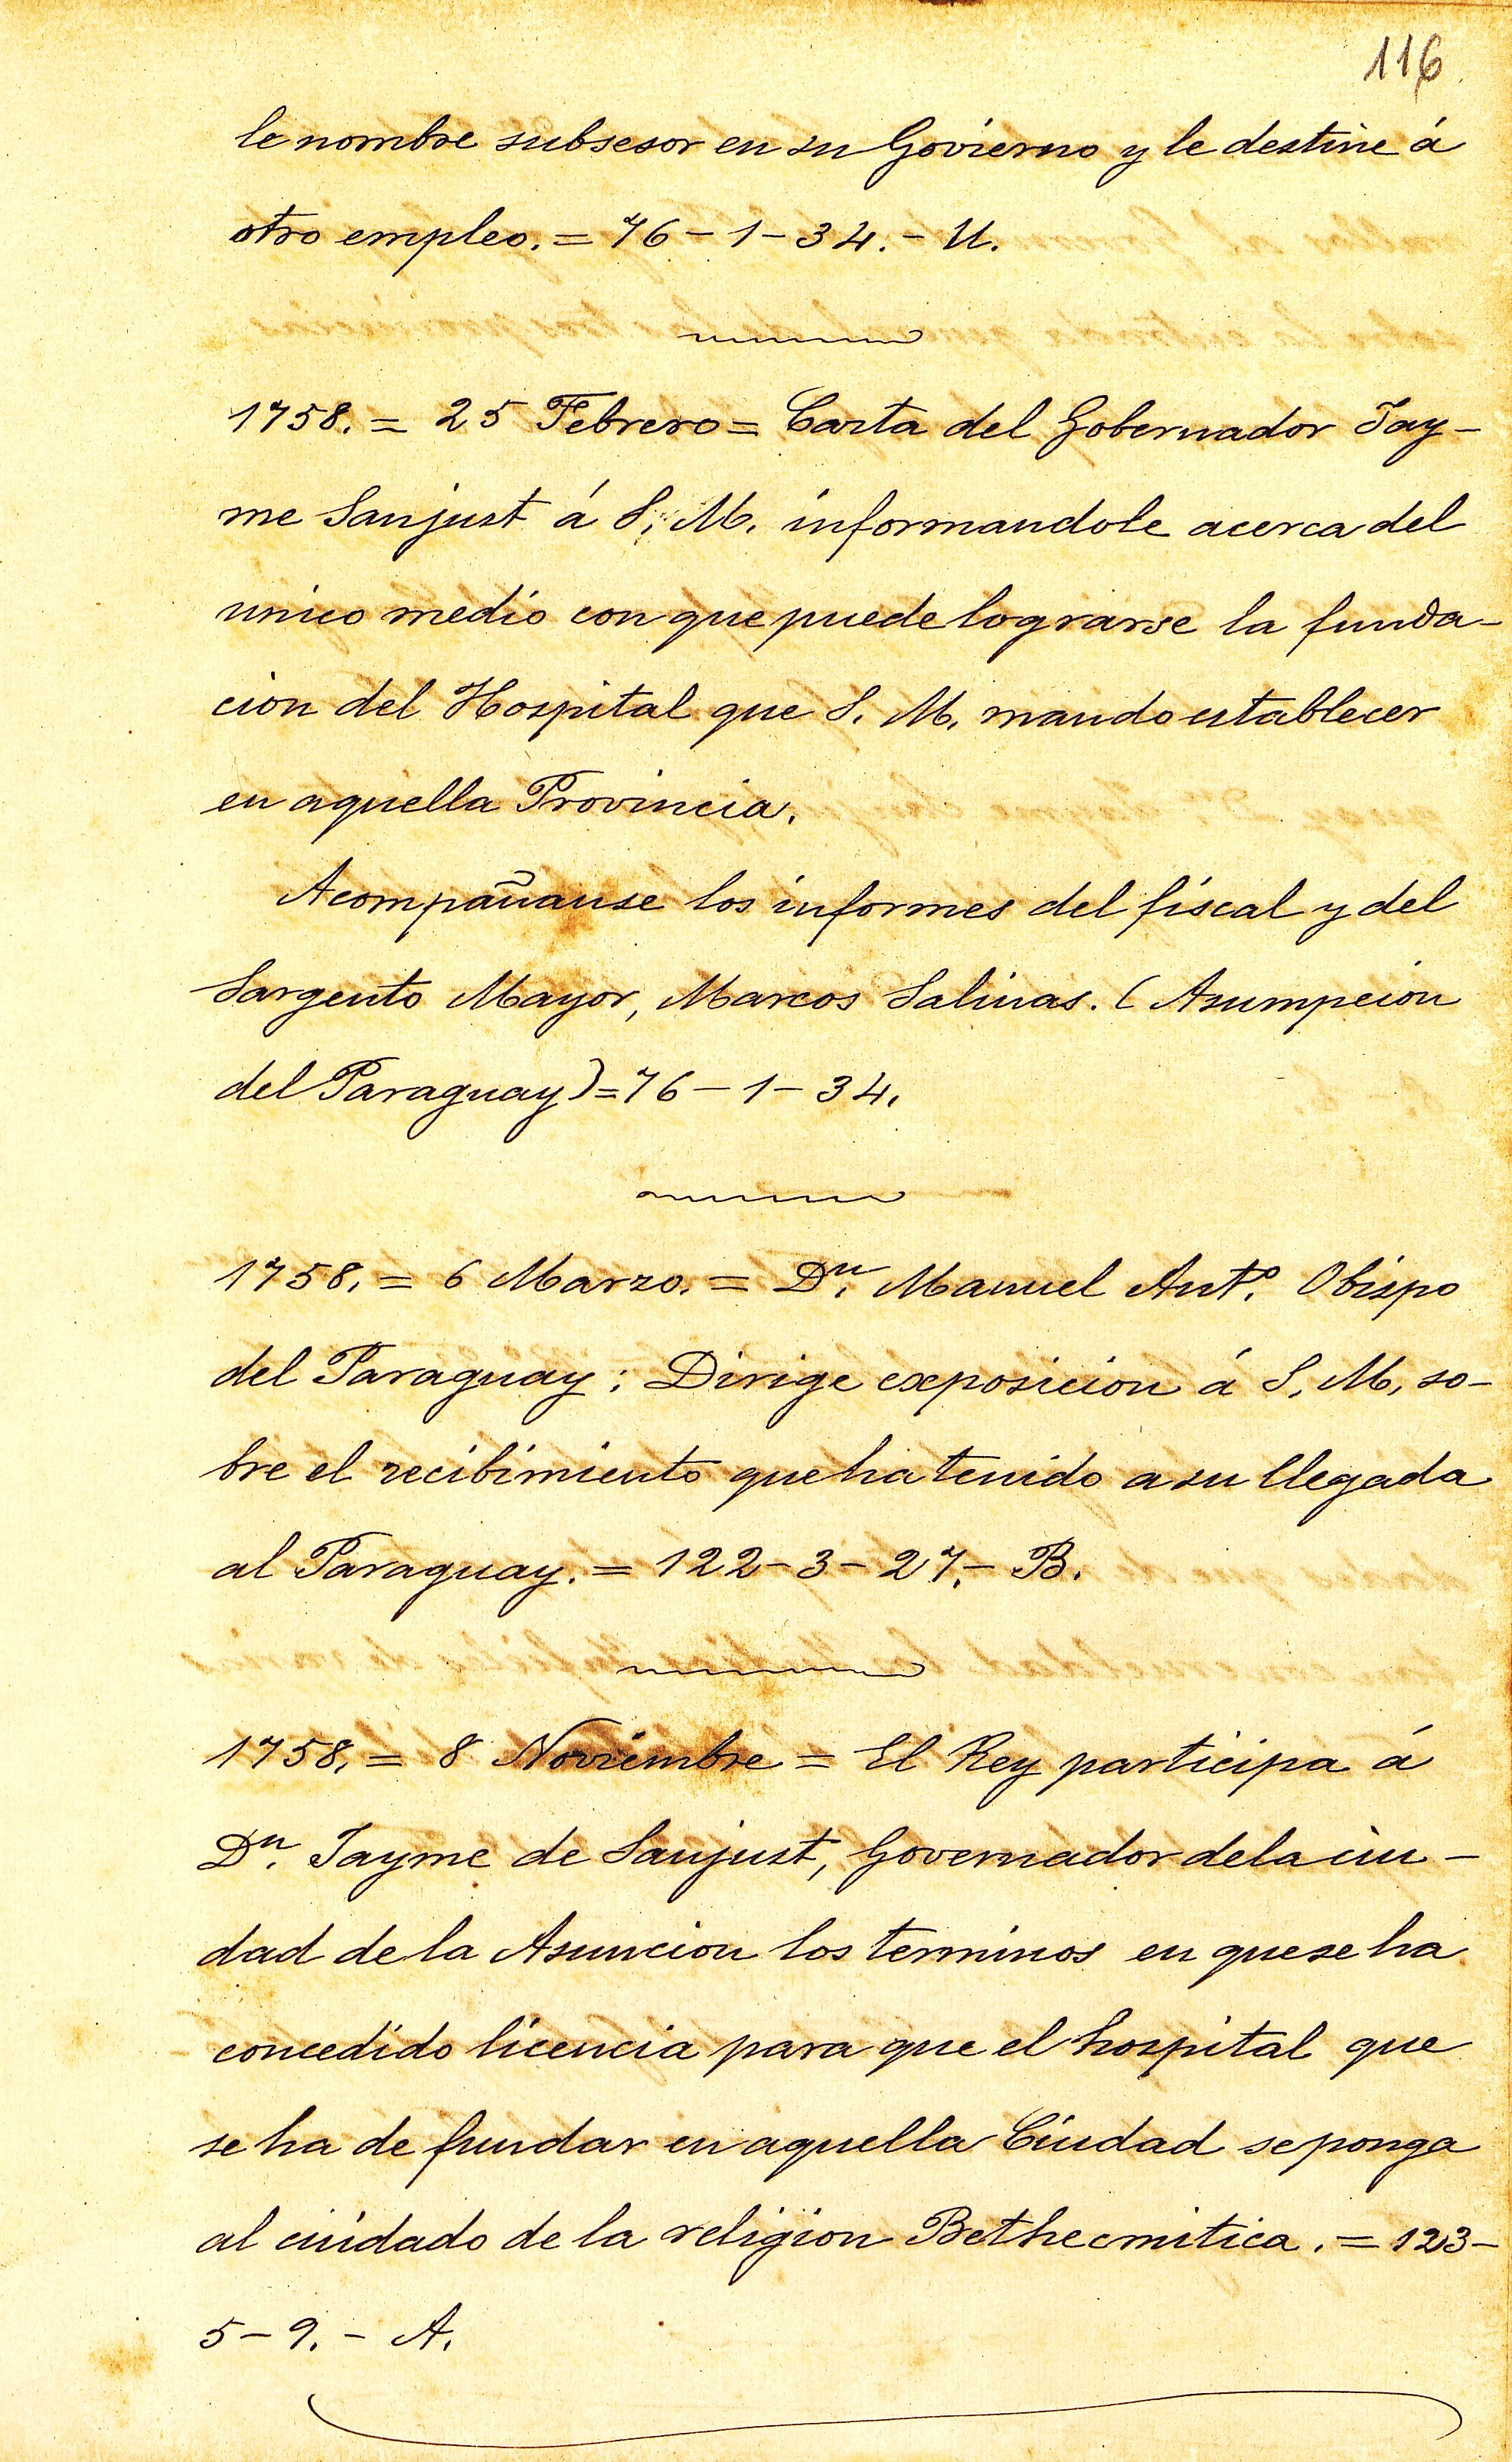 116
le nombre subsesor en su Govierno y le destine á
otro empleo. = 76 - 1 - 34. - U.
1758. = 25 Febrero = Carta del Gobernador Jay-
me Sanjust á S. M. informandole acerca del
unico medio con que puede lograrse la funda-
cion del Hospital que S. M. mando establecer
en aquella Provincia.
Acompáñanse los informes del fiscal y del
Sargento Mayor, Marcos Salinas. (Asumpcion
del Paraguay) = 76 - 1 - 34.
1758. = 6 Marzo. = Dn. Manuel Anto. Obispo
del Paraguay: Dirige exposicion á S. M. so-
bre el recibimiento que ha tenido a su llegada
al Paraguay. = 122 - 3 - 27. - B.
1758. = 8 Noviembre = El Rey participa á
Dn. Jayme de Sanjust, Governador de la ciu-
dad de la Asuncion los terminos en que se ha
concedido licencia para que el hospital que
se ha de fundar en aquella Ciudad se ponga
al cuidado de la religion Bethecmitica. = 123-
5 - 9. - A.